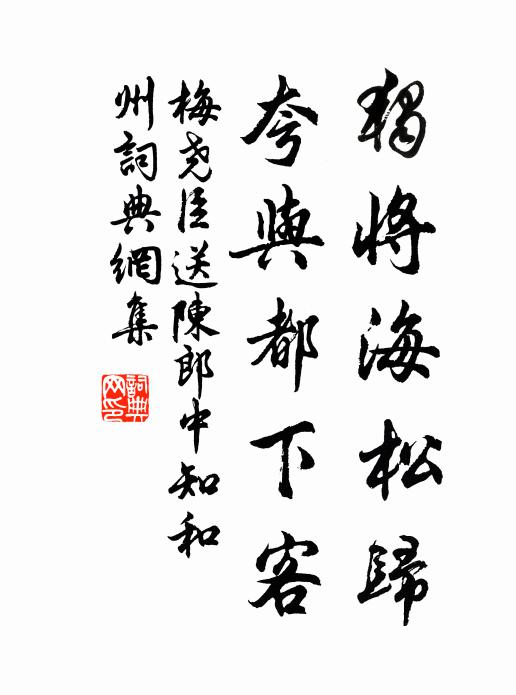 獨將海松歸
夸與都下客
梅尧臣送陳郎中知和
州詞典網集
詞典
网印